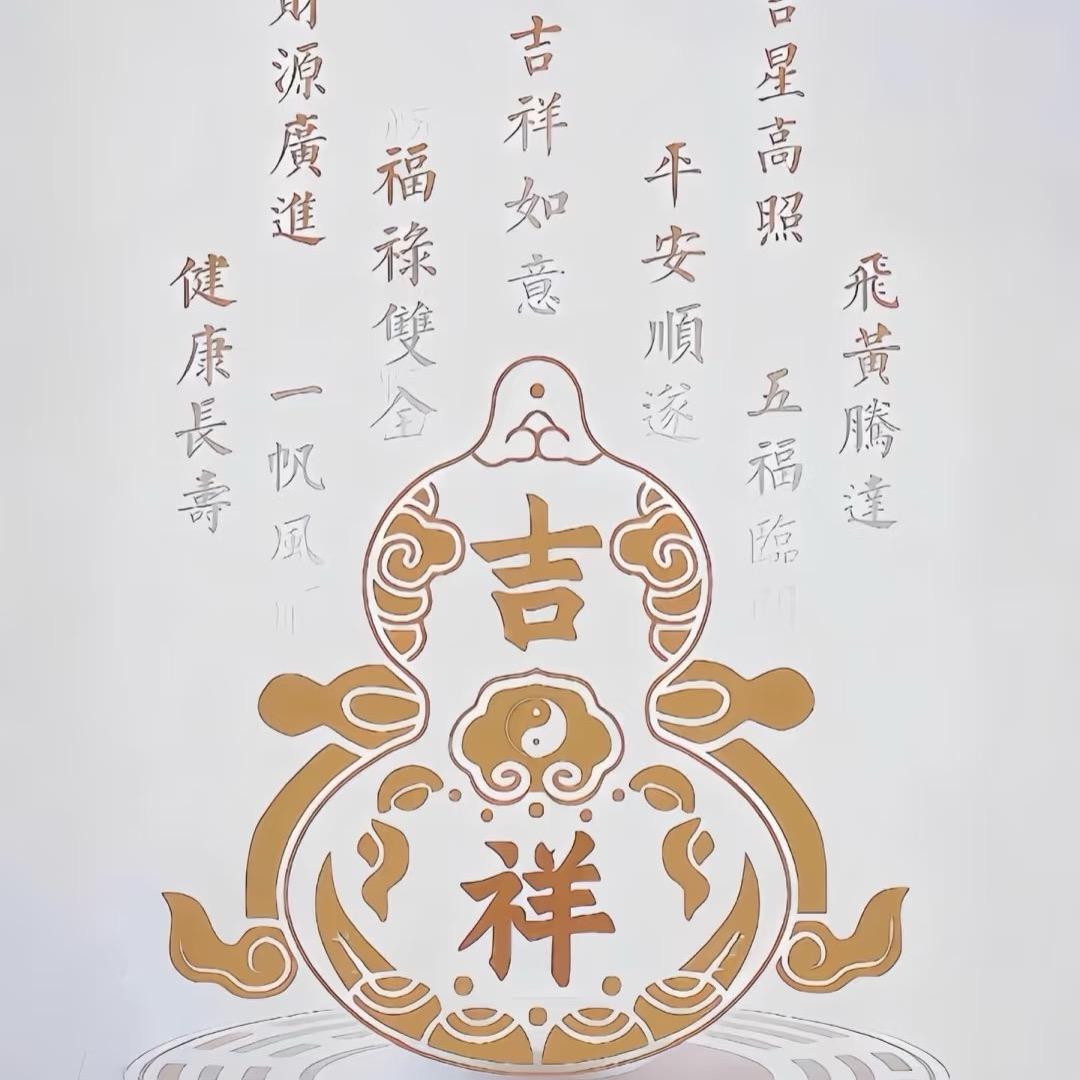 飛黃騰達
吉星高照
五福臨
平安順遂
吉祥如意
福祿雙全
財源廣進
一帆風
健康長壽
吉
祥